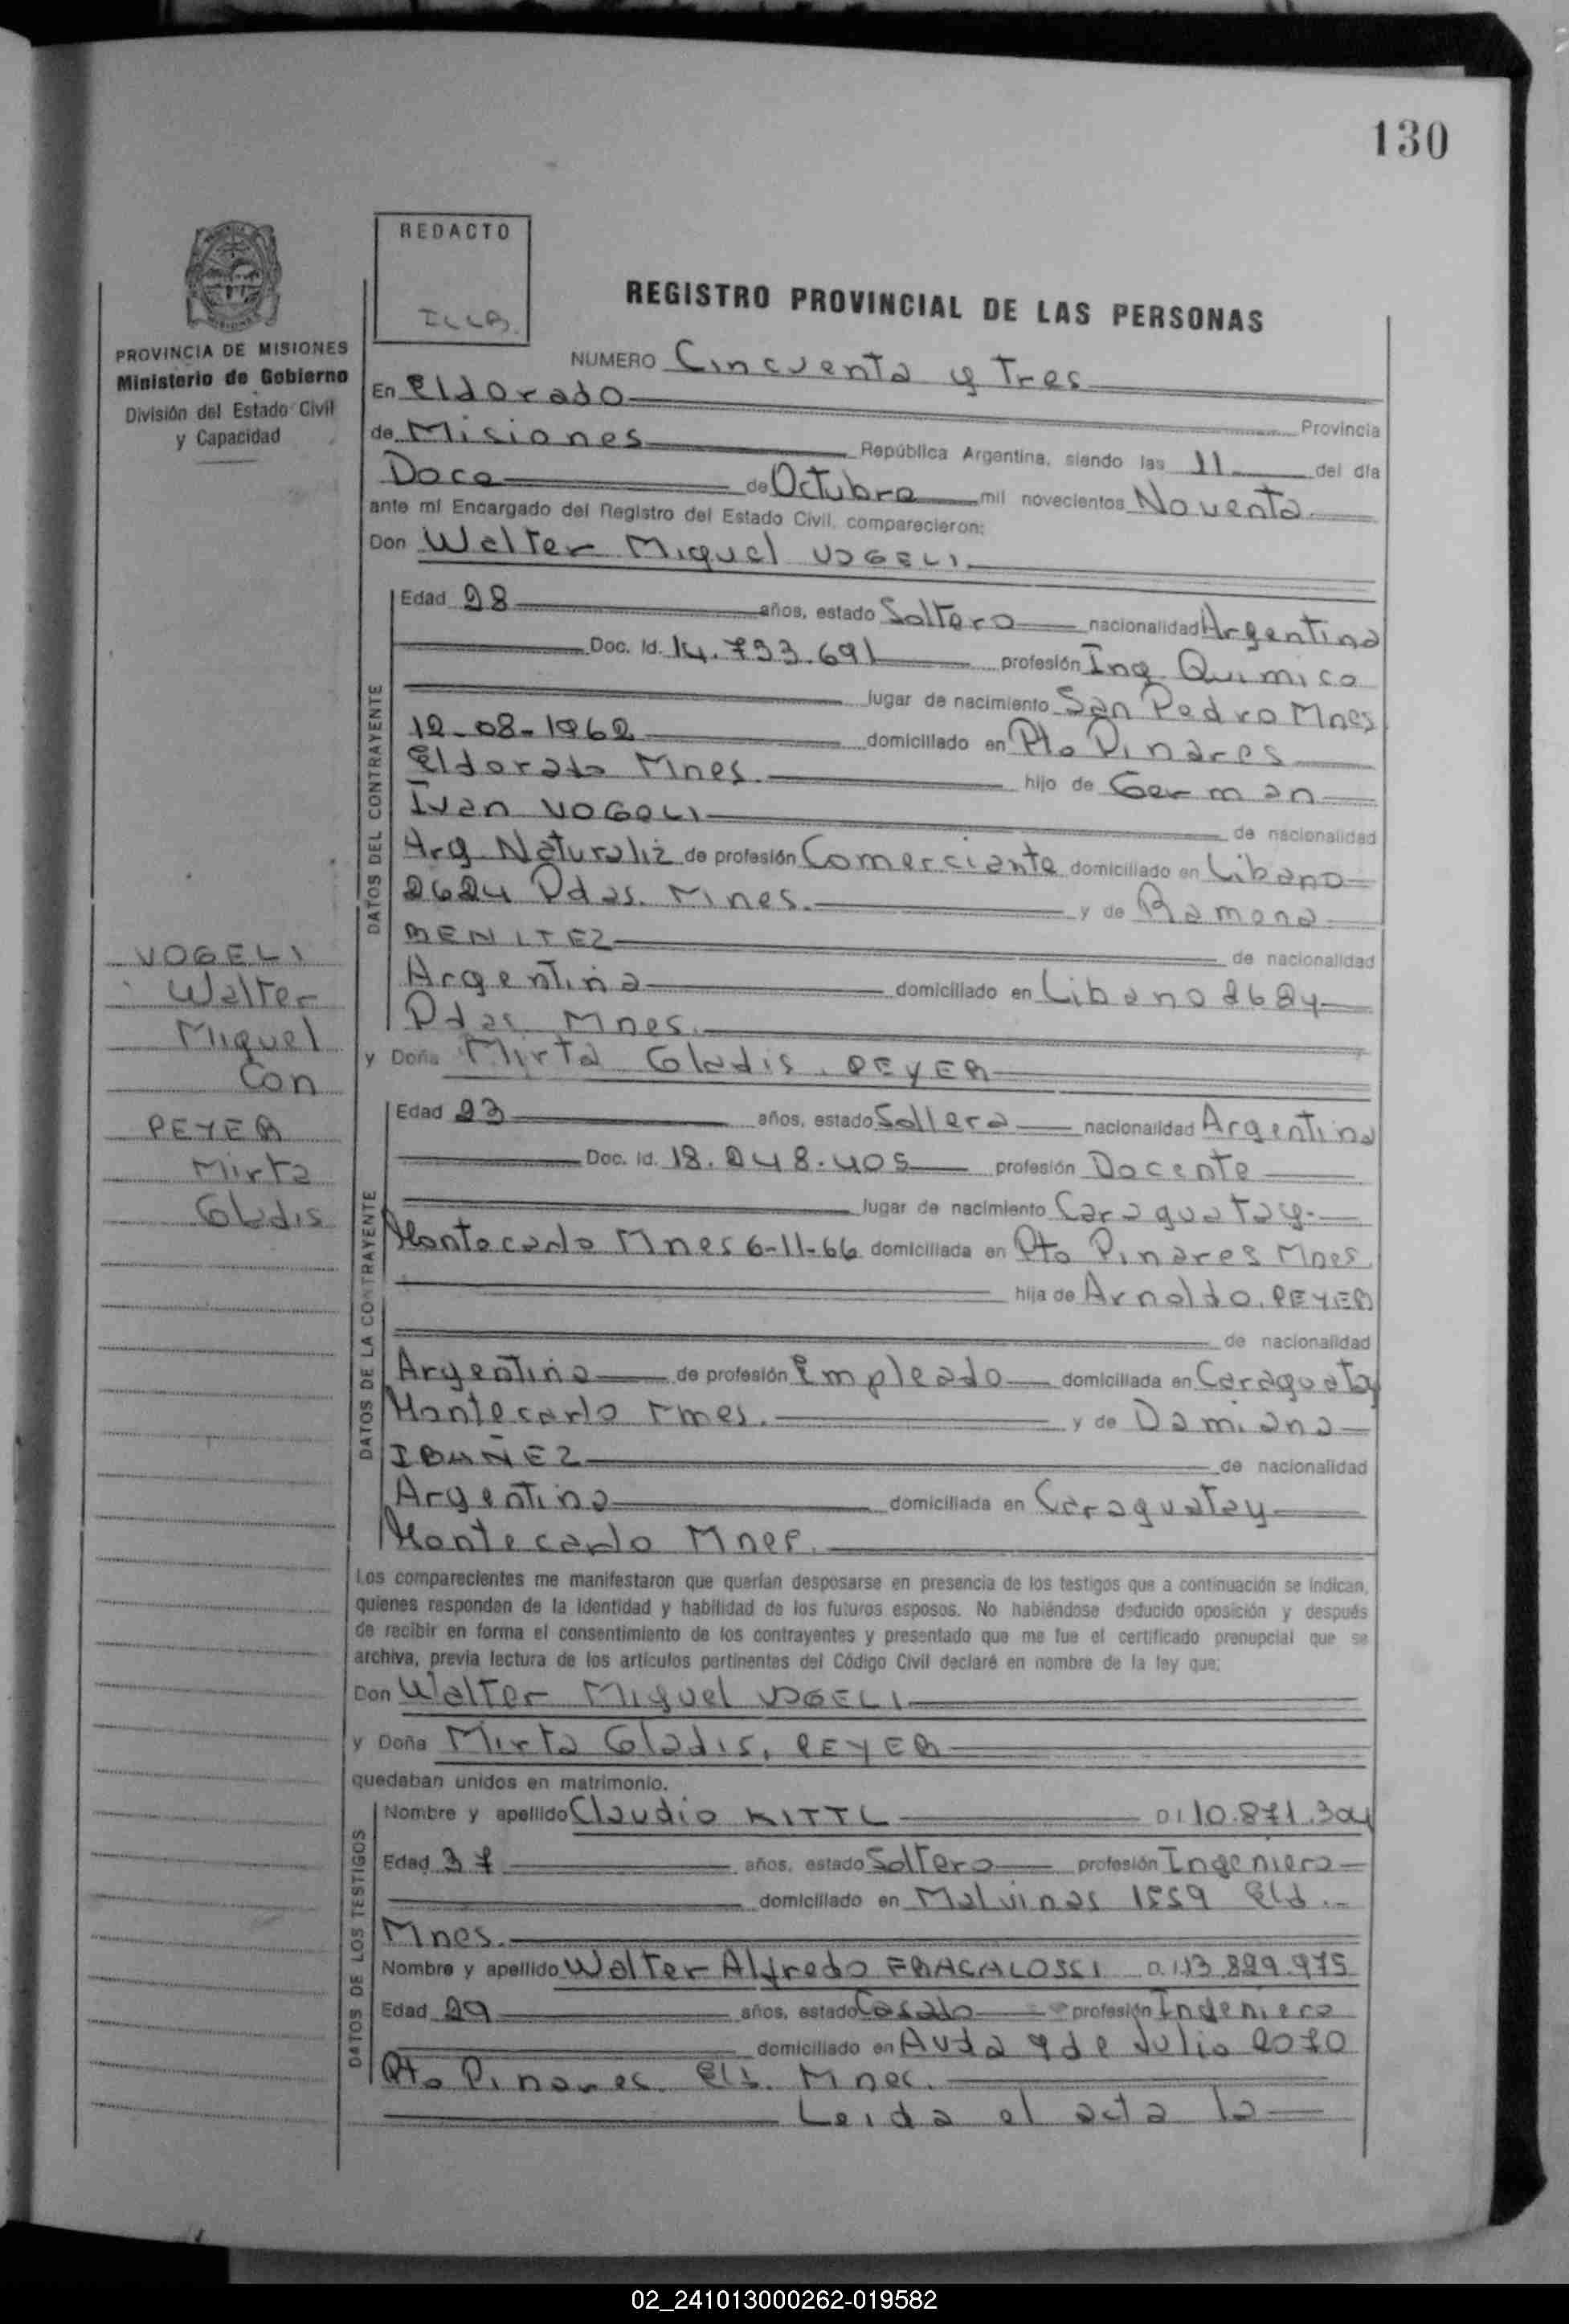 130
REDACTO
REGISTRO PROVINCIAL DE LAS PERSONAS
PROVINCIA DE MISIONES
Ministerio de Gobierno
División del Estado Civil
y Capacidad
NUMERO Cincuenta y Tres
En Eldorado Provincia
de Misiones República Argentina, siendo las 11 del día
Doce de Octubre mil novecientos Noventa
ante mí Encargado del Registro del Estado Civil, comparecieron:
Don Walter Miguel VOGELI
Edad 28 años, estado Soltero nacionalidad Argentina
Doc. Id. 14.733.691 profesión Ing Quimico
lugar de nacimiento San Pedro Mnes
12-08-1962 domiciliado en Pto Pinares
Eldorado Mnes. hijo de German
Ivan VOGELI de nacionalidad
Arg Naturaliz de profesión Comerciante domiciliado en Libano
2624 Pdas. Mnes. y de Ramona
BENITEZ de nacionalidad
Argentina domiciliado en Libano 2624
Pdas Mnes.
y Doña Mirta Gladis, PEYER
Edad 23 años, estado Soltera nacionalidad Argentina
Doc. Id. 18.248.405 profesión Docente
lugar de nacimiento Caraguatay
Montecarlo Mnes 6-11-66 domiciliada en Pto Pinares Mnes.
hija de Arnoldo, PEYER
de nacionalidad
Argentino de profesión Empleado domiciliada en Caraguatay
Montecarlo Mnes. y de Damiana
IBAÑEZ de nacionalidad
Argentina domiciliada en Caraguatay
Montecarlo Mnes.
VOGELI
Walter
Miguel
Con
PEYER
Mirta
Gladis
DATOS DEL CONTRAYENTE
DATOS DE LA CONTRAYENTE
Los comparecientes me manifestaron que querían desposarse en presencia de los testigos que a continuación se indican,
quienes responden de la identidad y habilidad de los futuros esposos. No habiéndose deducido oposición y después
de recibir en forma el consentimiento de los contrayentes y presentado que me fue el certificado prenupcial que se
archiva, previa lectura de los artículos pertinentes del Código Civil declaré en nombre de la ley que:
Don Walter Miguel VOGELI
y Doña Mirta Gladis, PEYER
quedaban unidos en matrimonio.
DATOS DE LOS TESTIGOS
Nombre y apellido Claudio KITTL D.I 10.871.304
Edad 37 años, estado Soltero profesión Ingeniero
domiciliado en Malvinas 1559 Eld.
Mnes.
Nombre y apellido Walter Alfredo FRACALOSSI D.I 13.829.975
Edad 29 años, estado Casado profesión Ingeniero
domiciliado en Avda 9 de Julio 2070
Pto Pinares. Eld. Mnes.
Leida el acta la
02_241013000262-019582